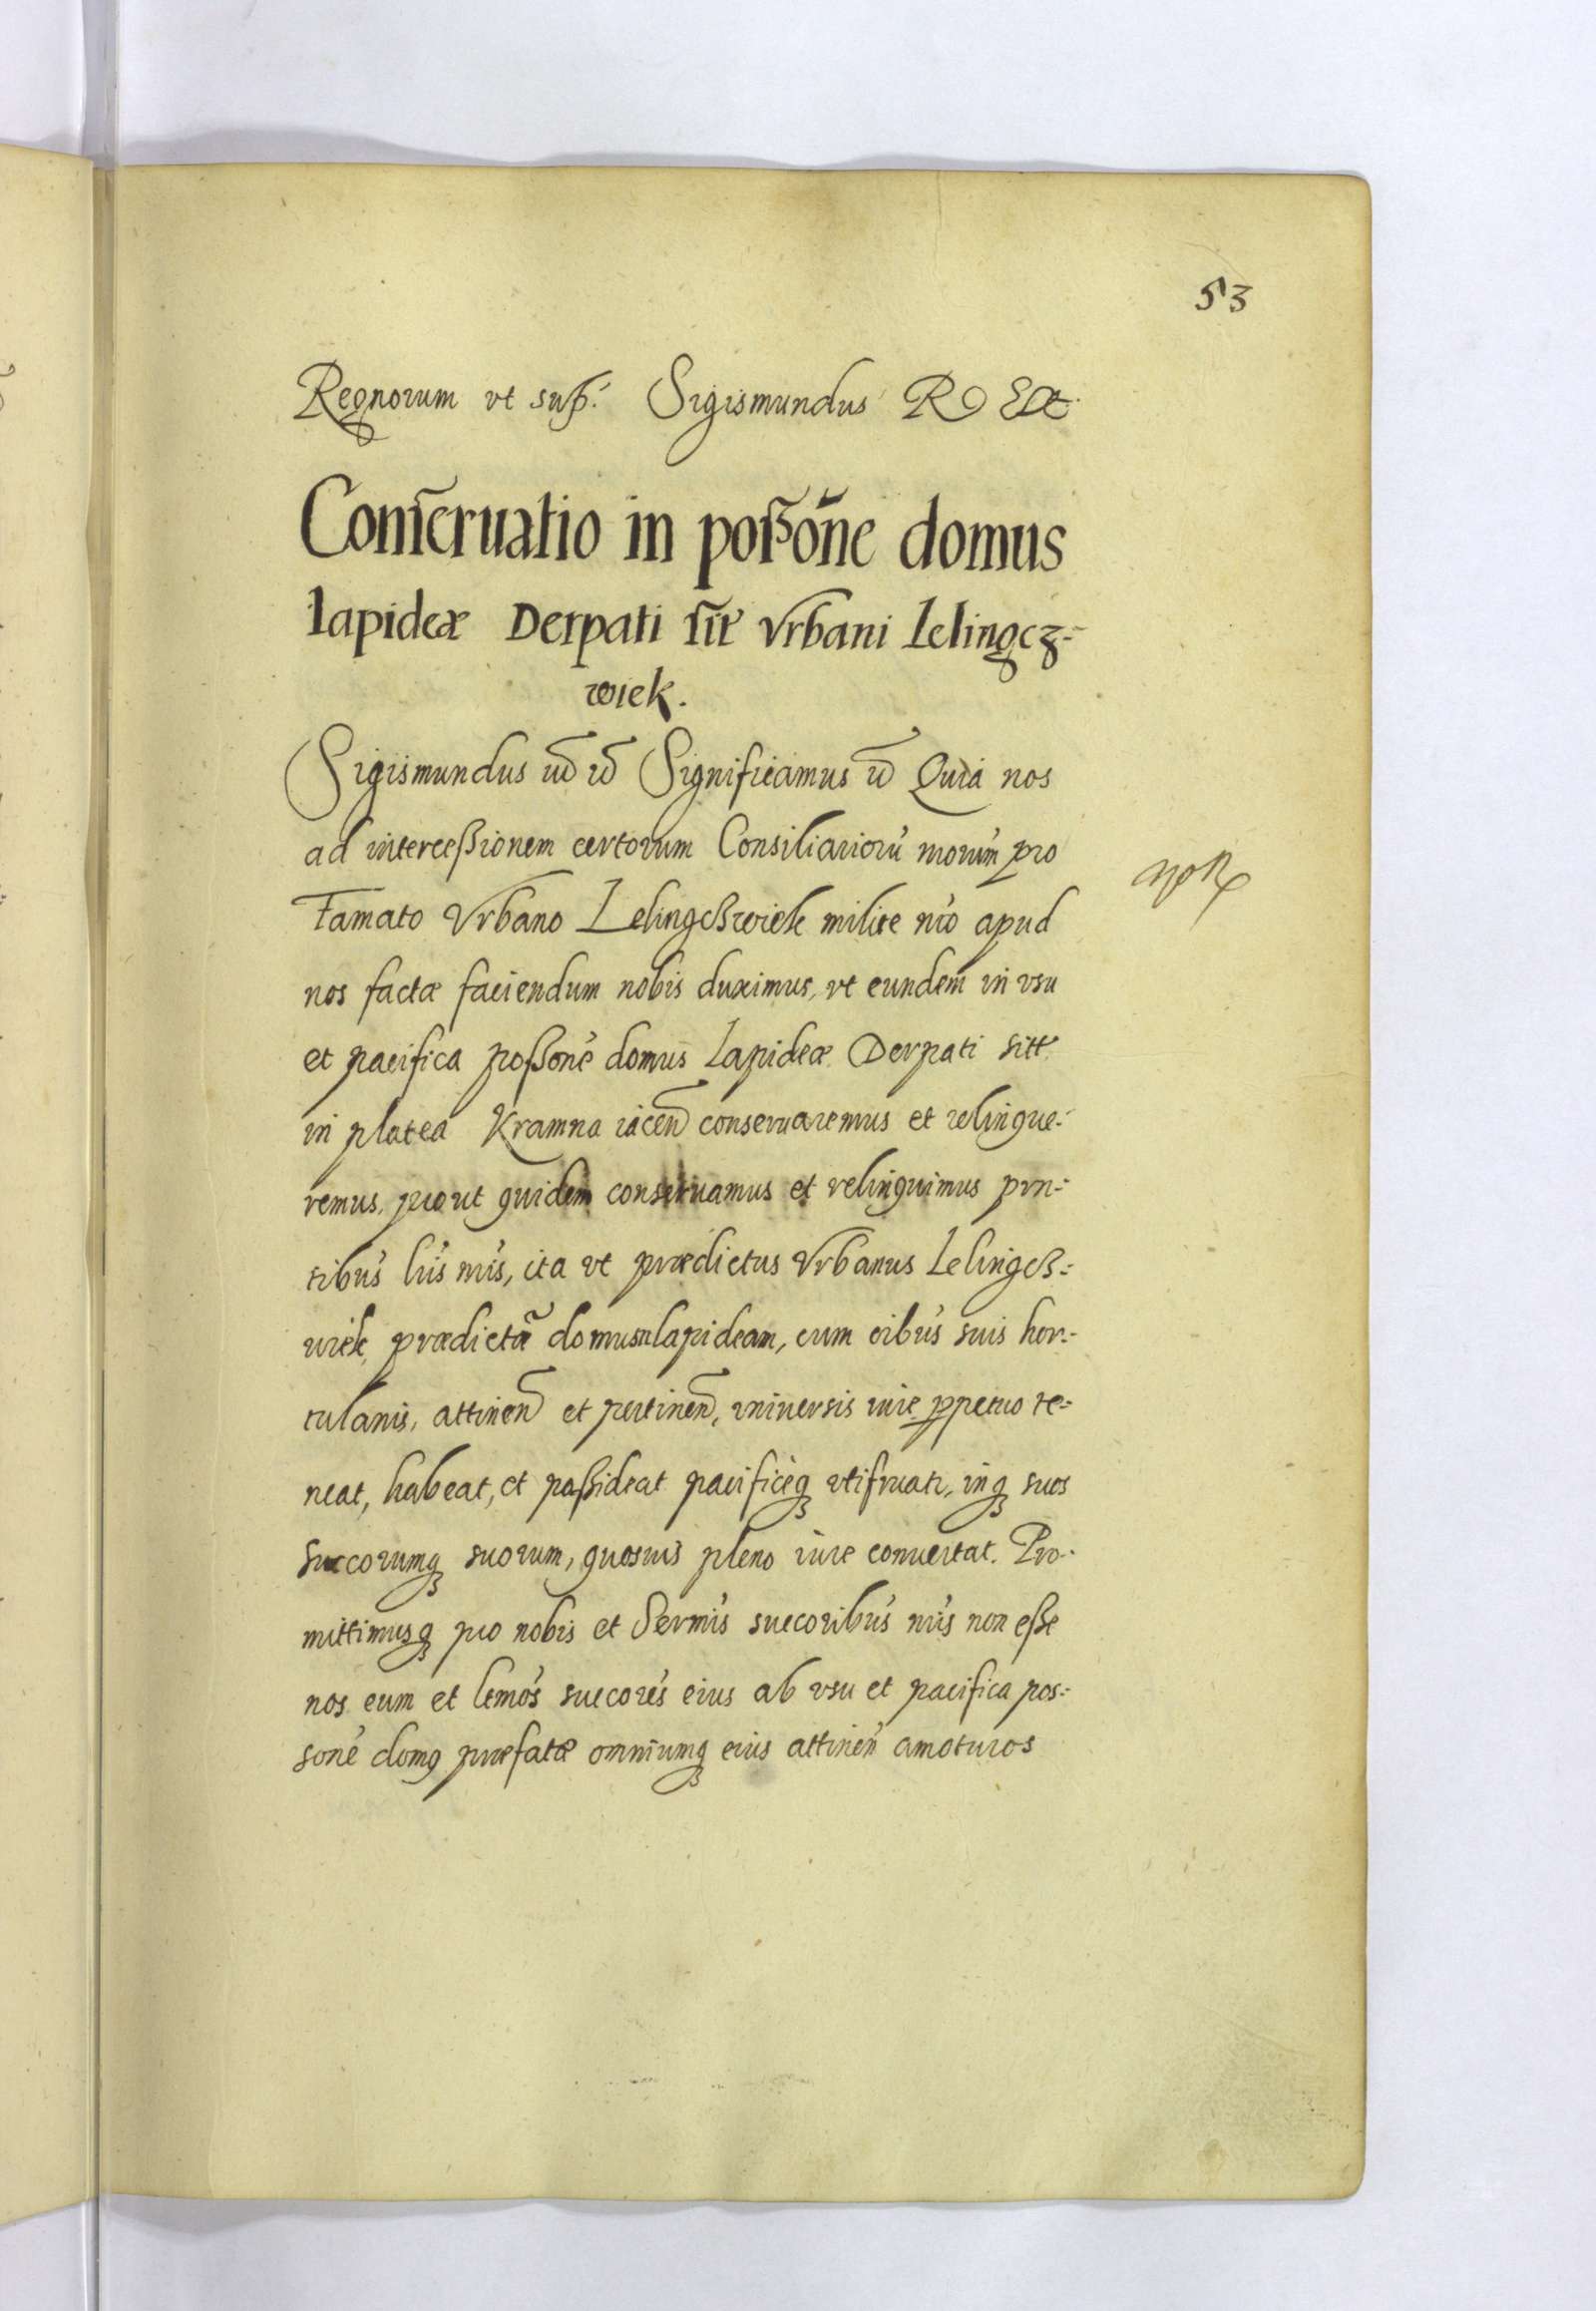 53
Regnorum vt sup: Sigismundus Rex
Conseruatio in poßone domus
lapideæ Derpati sit Vrbani Lelingcz-
wiek.
Sigismundus Significamus Quia nos
ad interceßionem certorum Consiliariorū nrorum pro
Famato Vrbano Lelingcßwiek milite nro apud
nos factæ faciendum nobis duximus, vt eundem in vsu
et pacifica poßone domus lapideæ Derpati sitt
in platea Kramna iacen conseruaremus et relinque-
remus, prout quidem conseruamus et relinquimus prn-
tibus lris nris, ita vt prædictus Vrbanus Lelingcß-
wiek, prædictā domum lapideam, cum oibus suis hor-
tulanis, attinen et pertinen, vniuersis iure ppetuo te-
neat, habeat, et poßideat pacificèq vtifruatr, inq suos
succorumq suorum, quosuis pleno iure conuertat. Pro-
mittimusq pro nobis et Sermis succoribus nris non eße
nos eum et lemos succores eius ab vsu et pacifica pos-
sone domq præfatæ omniumq eius attinen amoturos